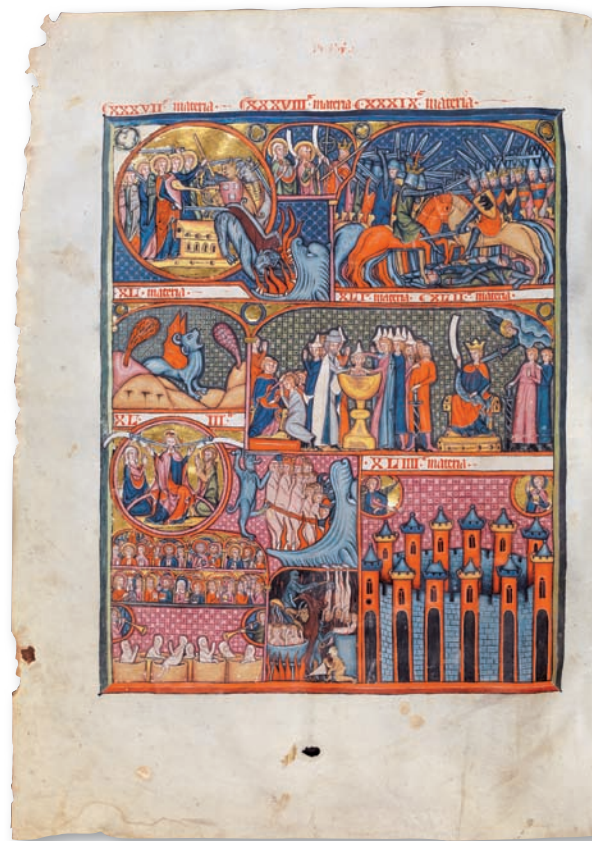 CXXXVII materia CXXXVIIIª materia CXXXIXª materia
XL materia XLI materia XLII materia
XL IIIª
XLIIII materia